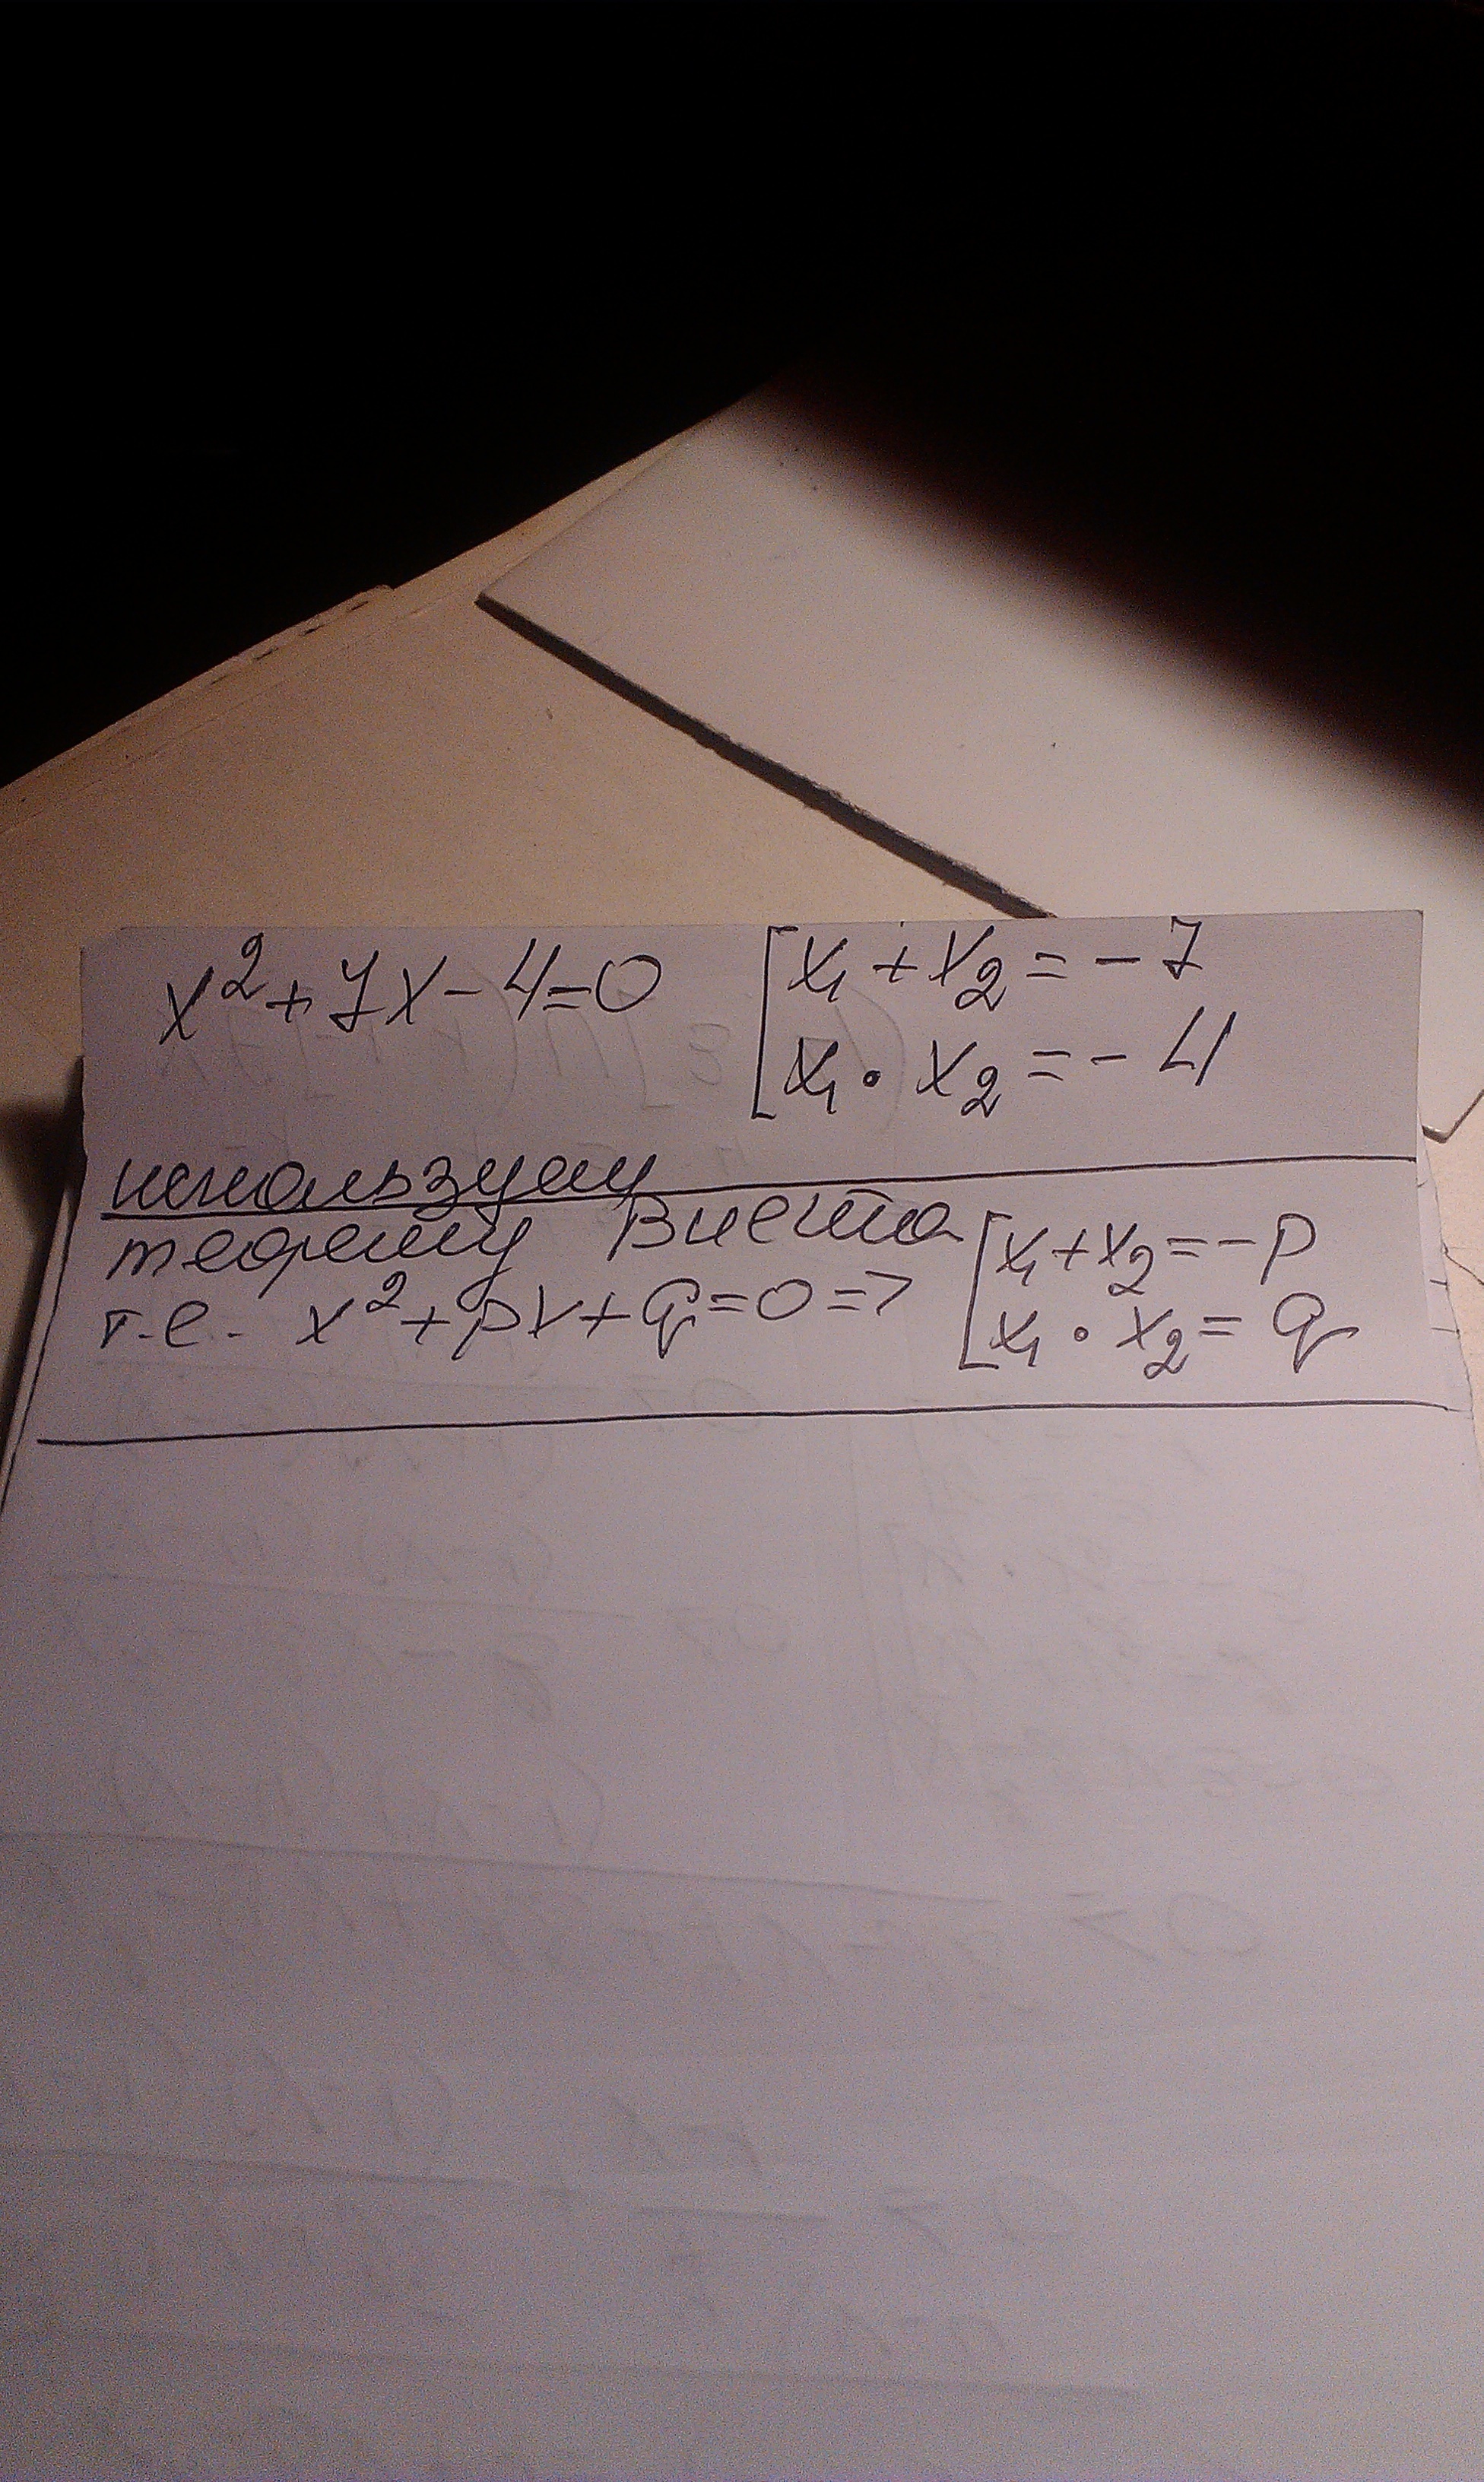 x²+7x-4=0 [x₁+x₂=-7
[x₁·x₂=-4
используем
теорему Виета [x₁+x₂=-p
т.е. x²+px+q=0=> [x₁·x₂=q